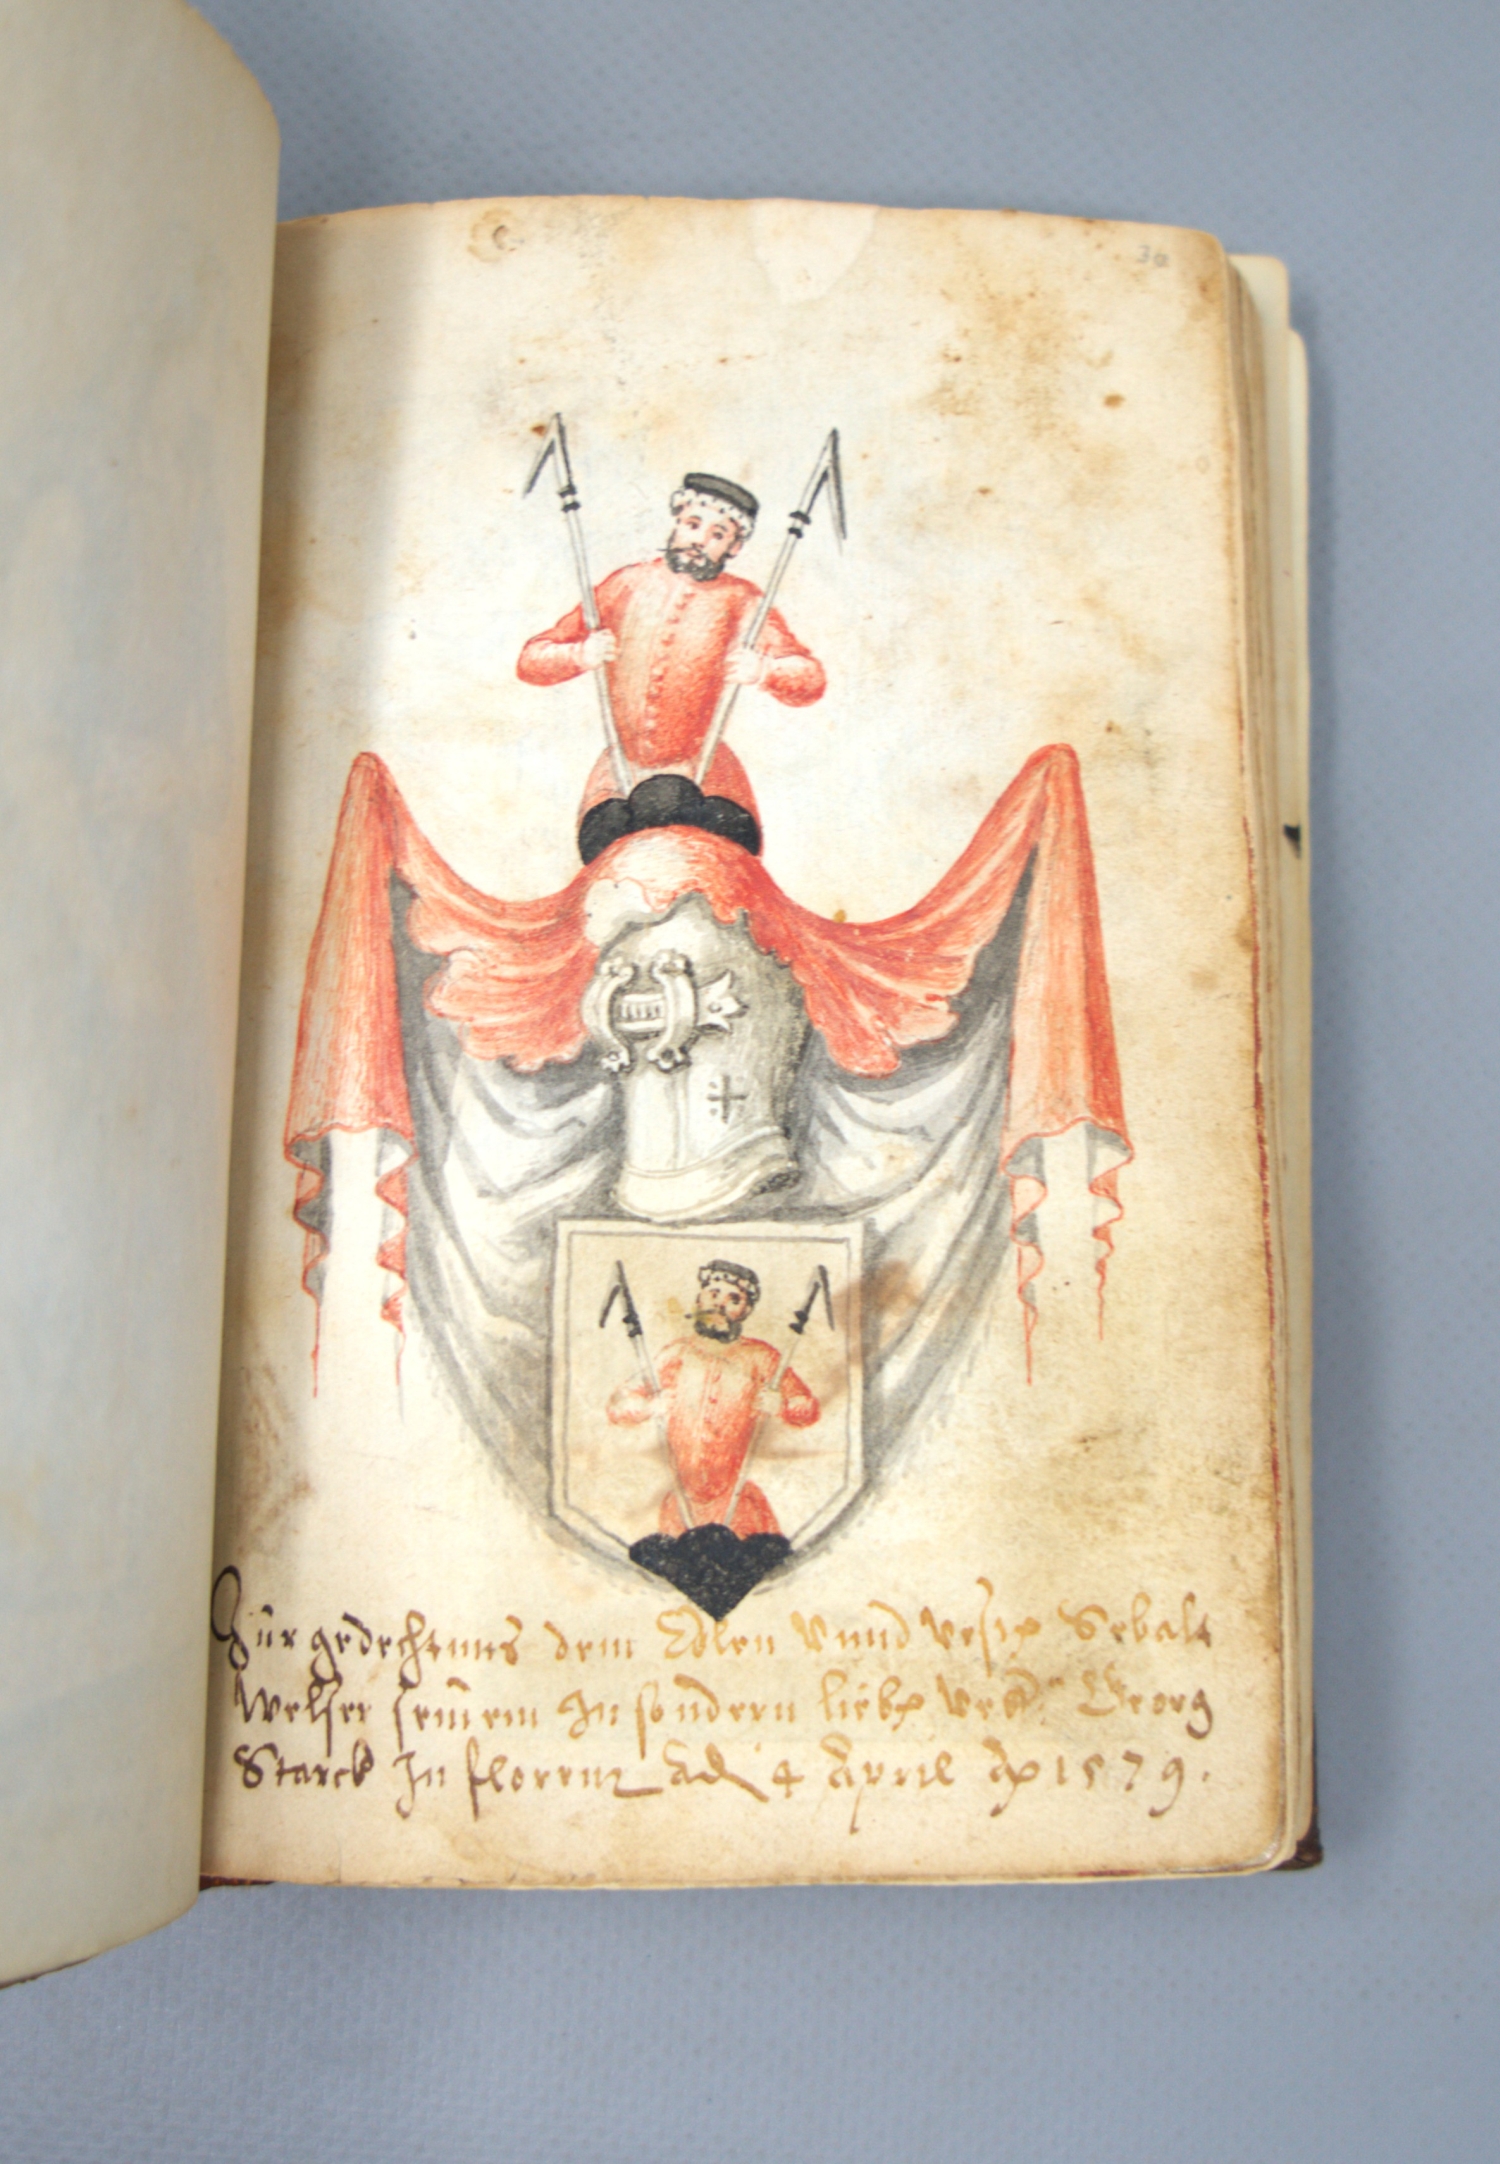 30
Zur gedechtnus dem Edlen Vnnd Vesten Sebalt
Welser seinem In sondern lieben Georg
Starck In florenz Adj 4 April Ao 1579.